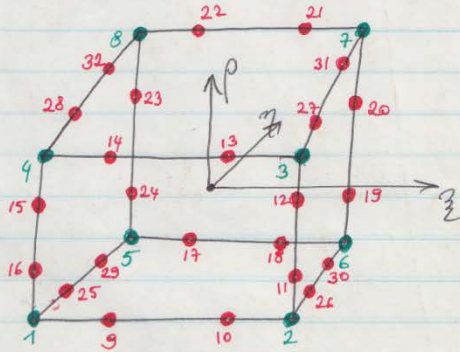 22 21
8 7
32 31
ρ
28 23 27 20
η
14 13
4 3
15 24 12 19
ξ
5 17 18 6
16 29 11 30
25 26
1 9 10 2